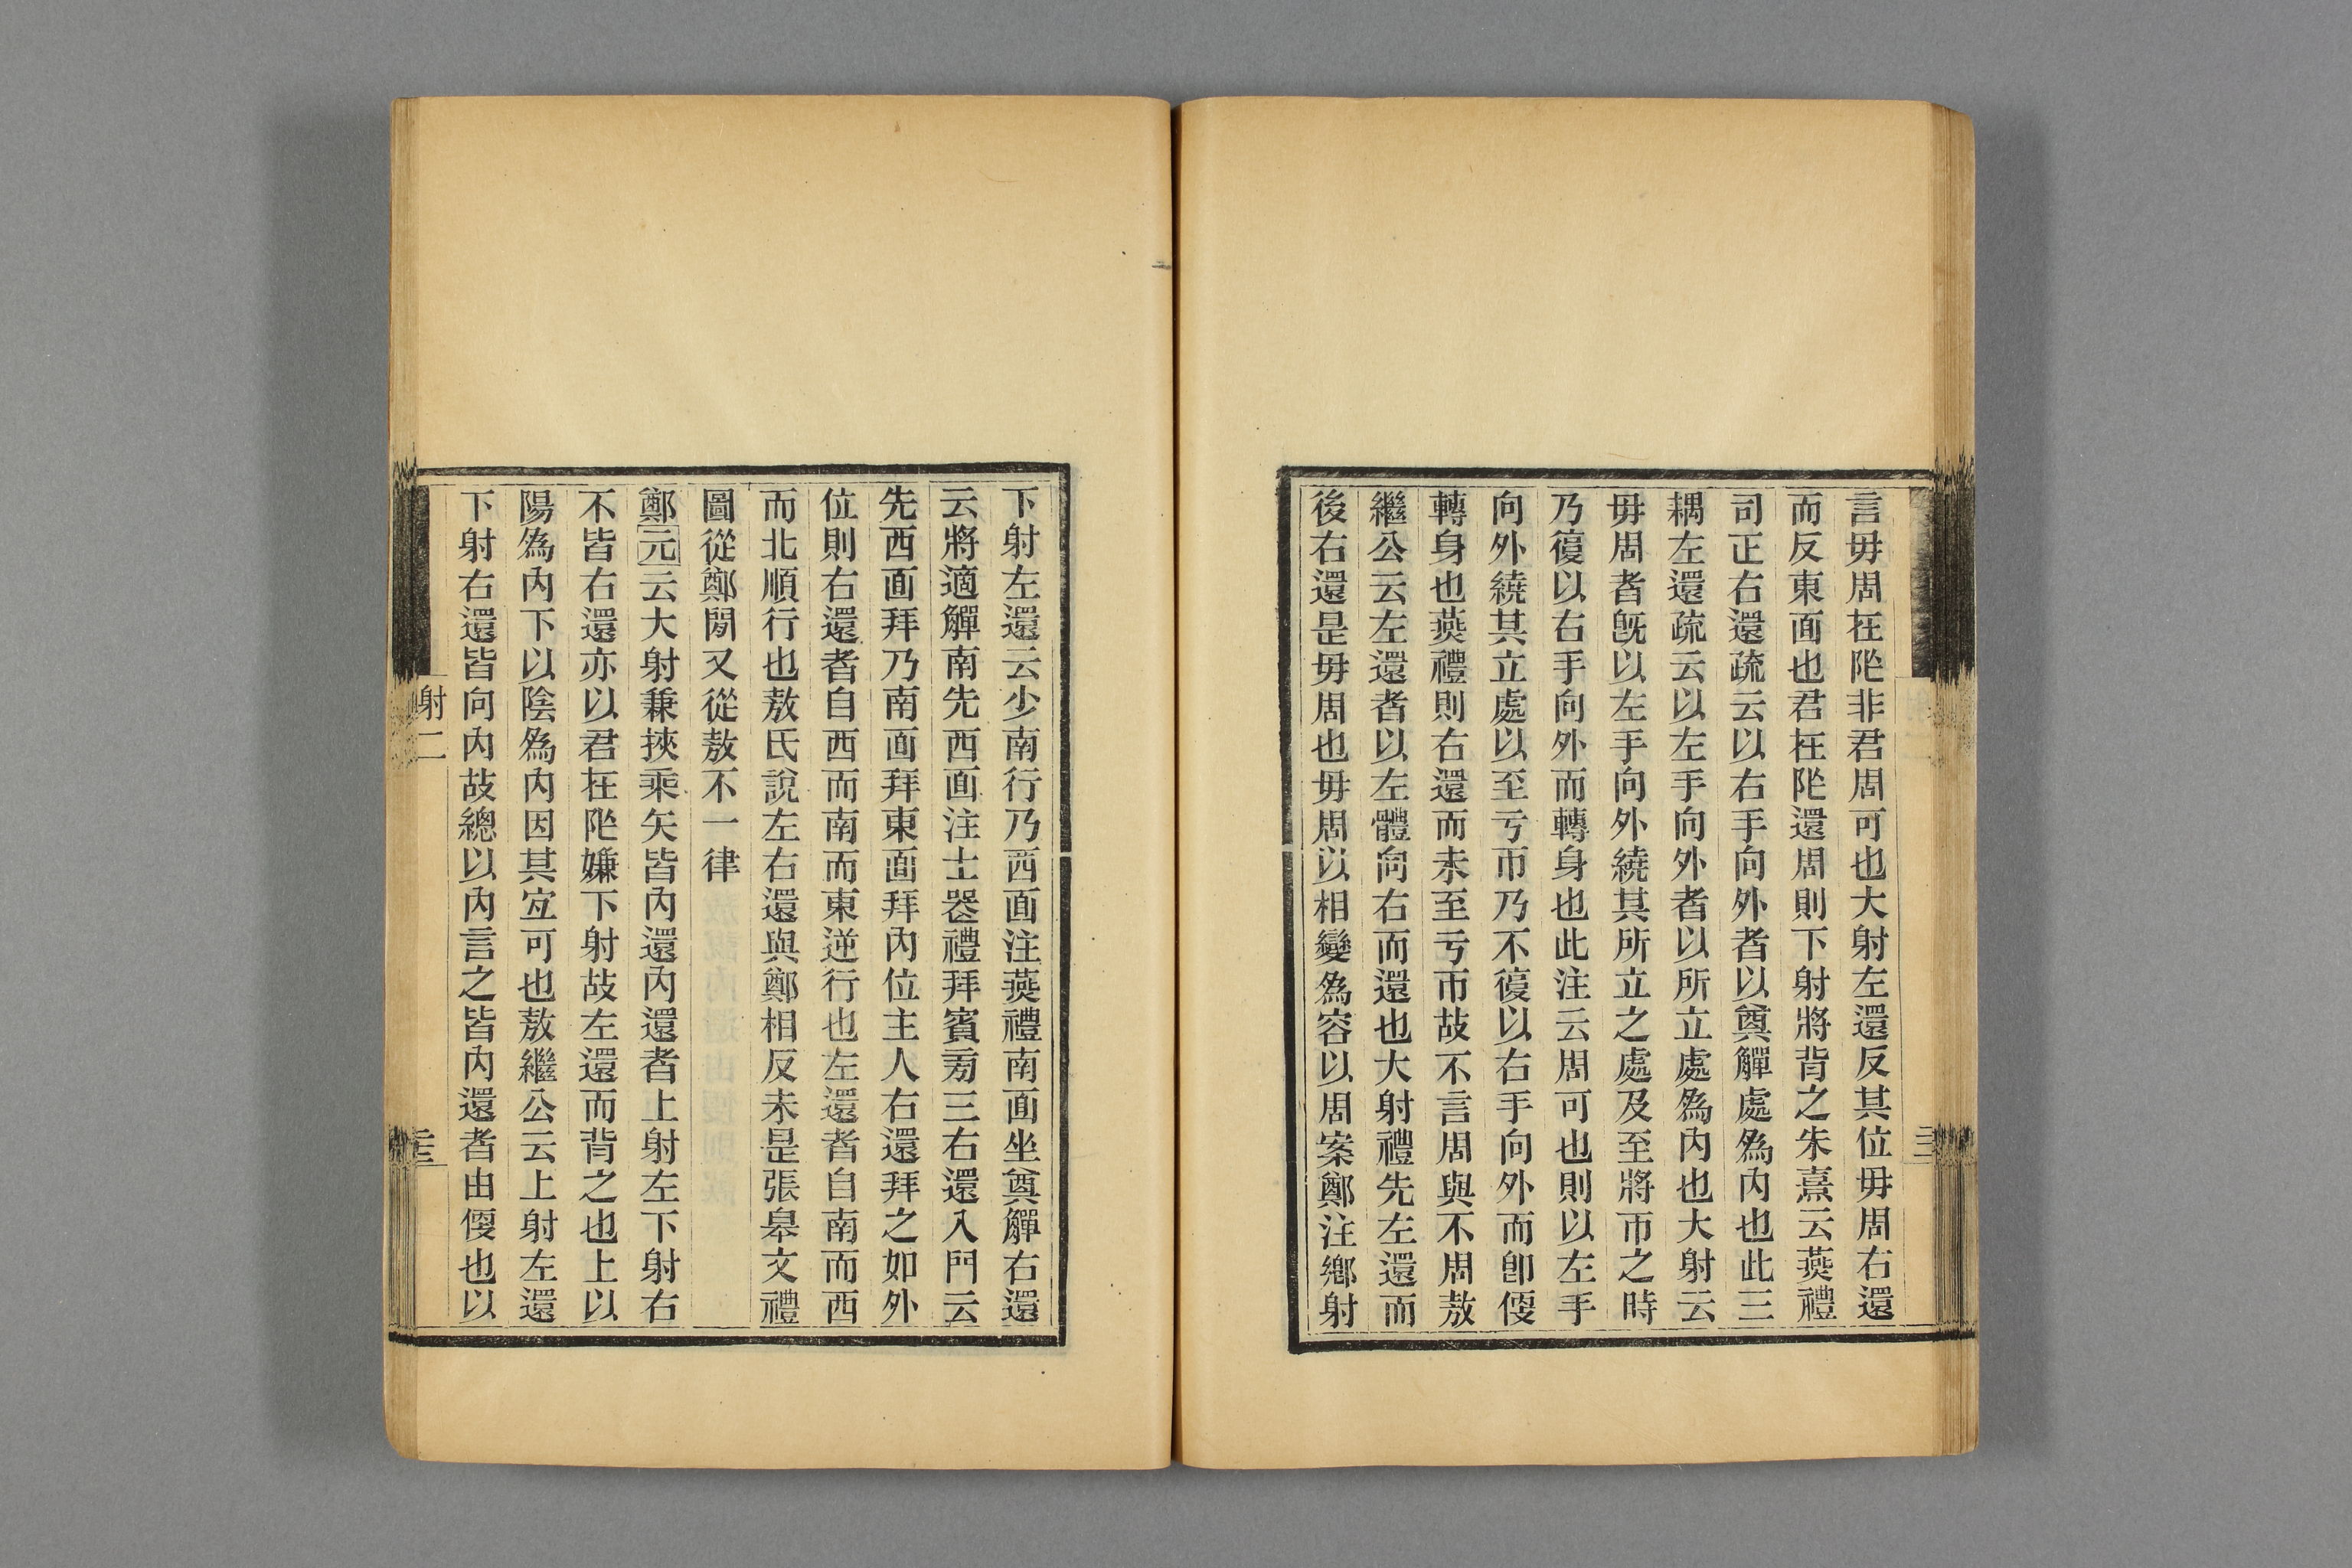 言毋周在阼非君周可也大射左還反其位毋周右還
而反東面也君在阼還周則下射將背之朱熹云燕禮
司正右還疏云以右手向外者以奠觶處為內也此三
耦左還疏云以左手向外者以所立處為內也大射云
毋周者既以左手向外繞其所立之處及至將帀之時
乃復以右手向外而轉身也此注云周可也則以左手
向外繞其立處以至亏帀乃不復以右手向外而卽偄
轉身也燕禮則右還而未至亏帀故不言周與不周敖
繼公云左還者以左體向右而還也大射禮先左還而
後右還是毋周也毋周以相變為容以周案鄭注鄉射
下射左還云少南行乃西面注燕禮南面坐奠觶右還
云將適觶南先西面注士喪禮拜賓㫄三右還入門云
先西面拜乃南面拜東面拜內位主人右還拜之如外
位則右還者自西而南而東逆行也左還者自南而西
而北順行也敖氏說左右還與鄭相反未是張皋文禮
圖從鄭閒又從敖不一律
鄭元云大射兼挾乘矢皆內還內還者上射左下射右
不皆右還亦以君在阼嫌下射故左還而背之也上以
陽為內下以陰為內因其宜可也敖繼公云上射左還
下射右還皆向內故總以內言之皆內還者由偄也以
射二